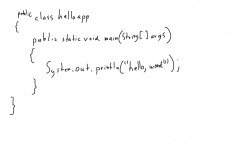 public class helloapp
{
public static void main(String[] args)
{
System.out.println("hello, world");
}
}